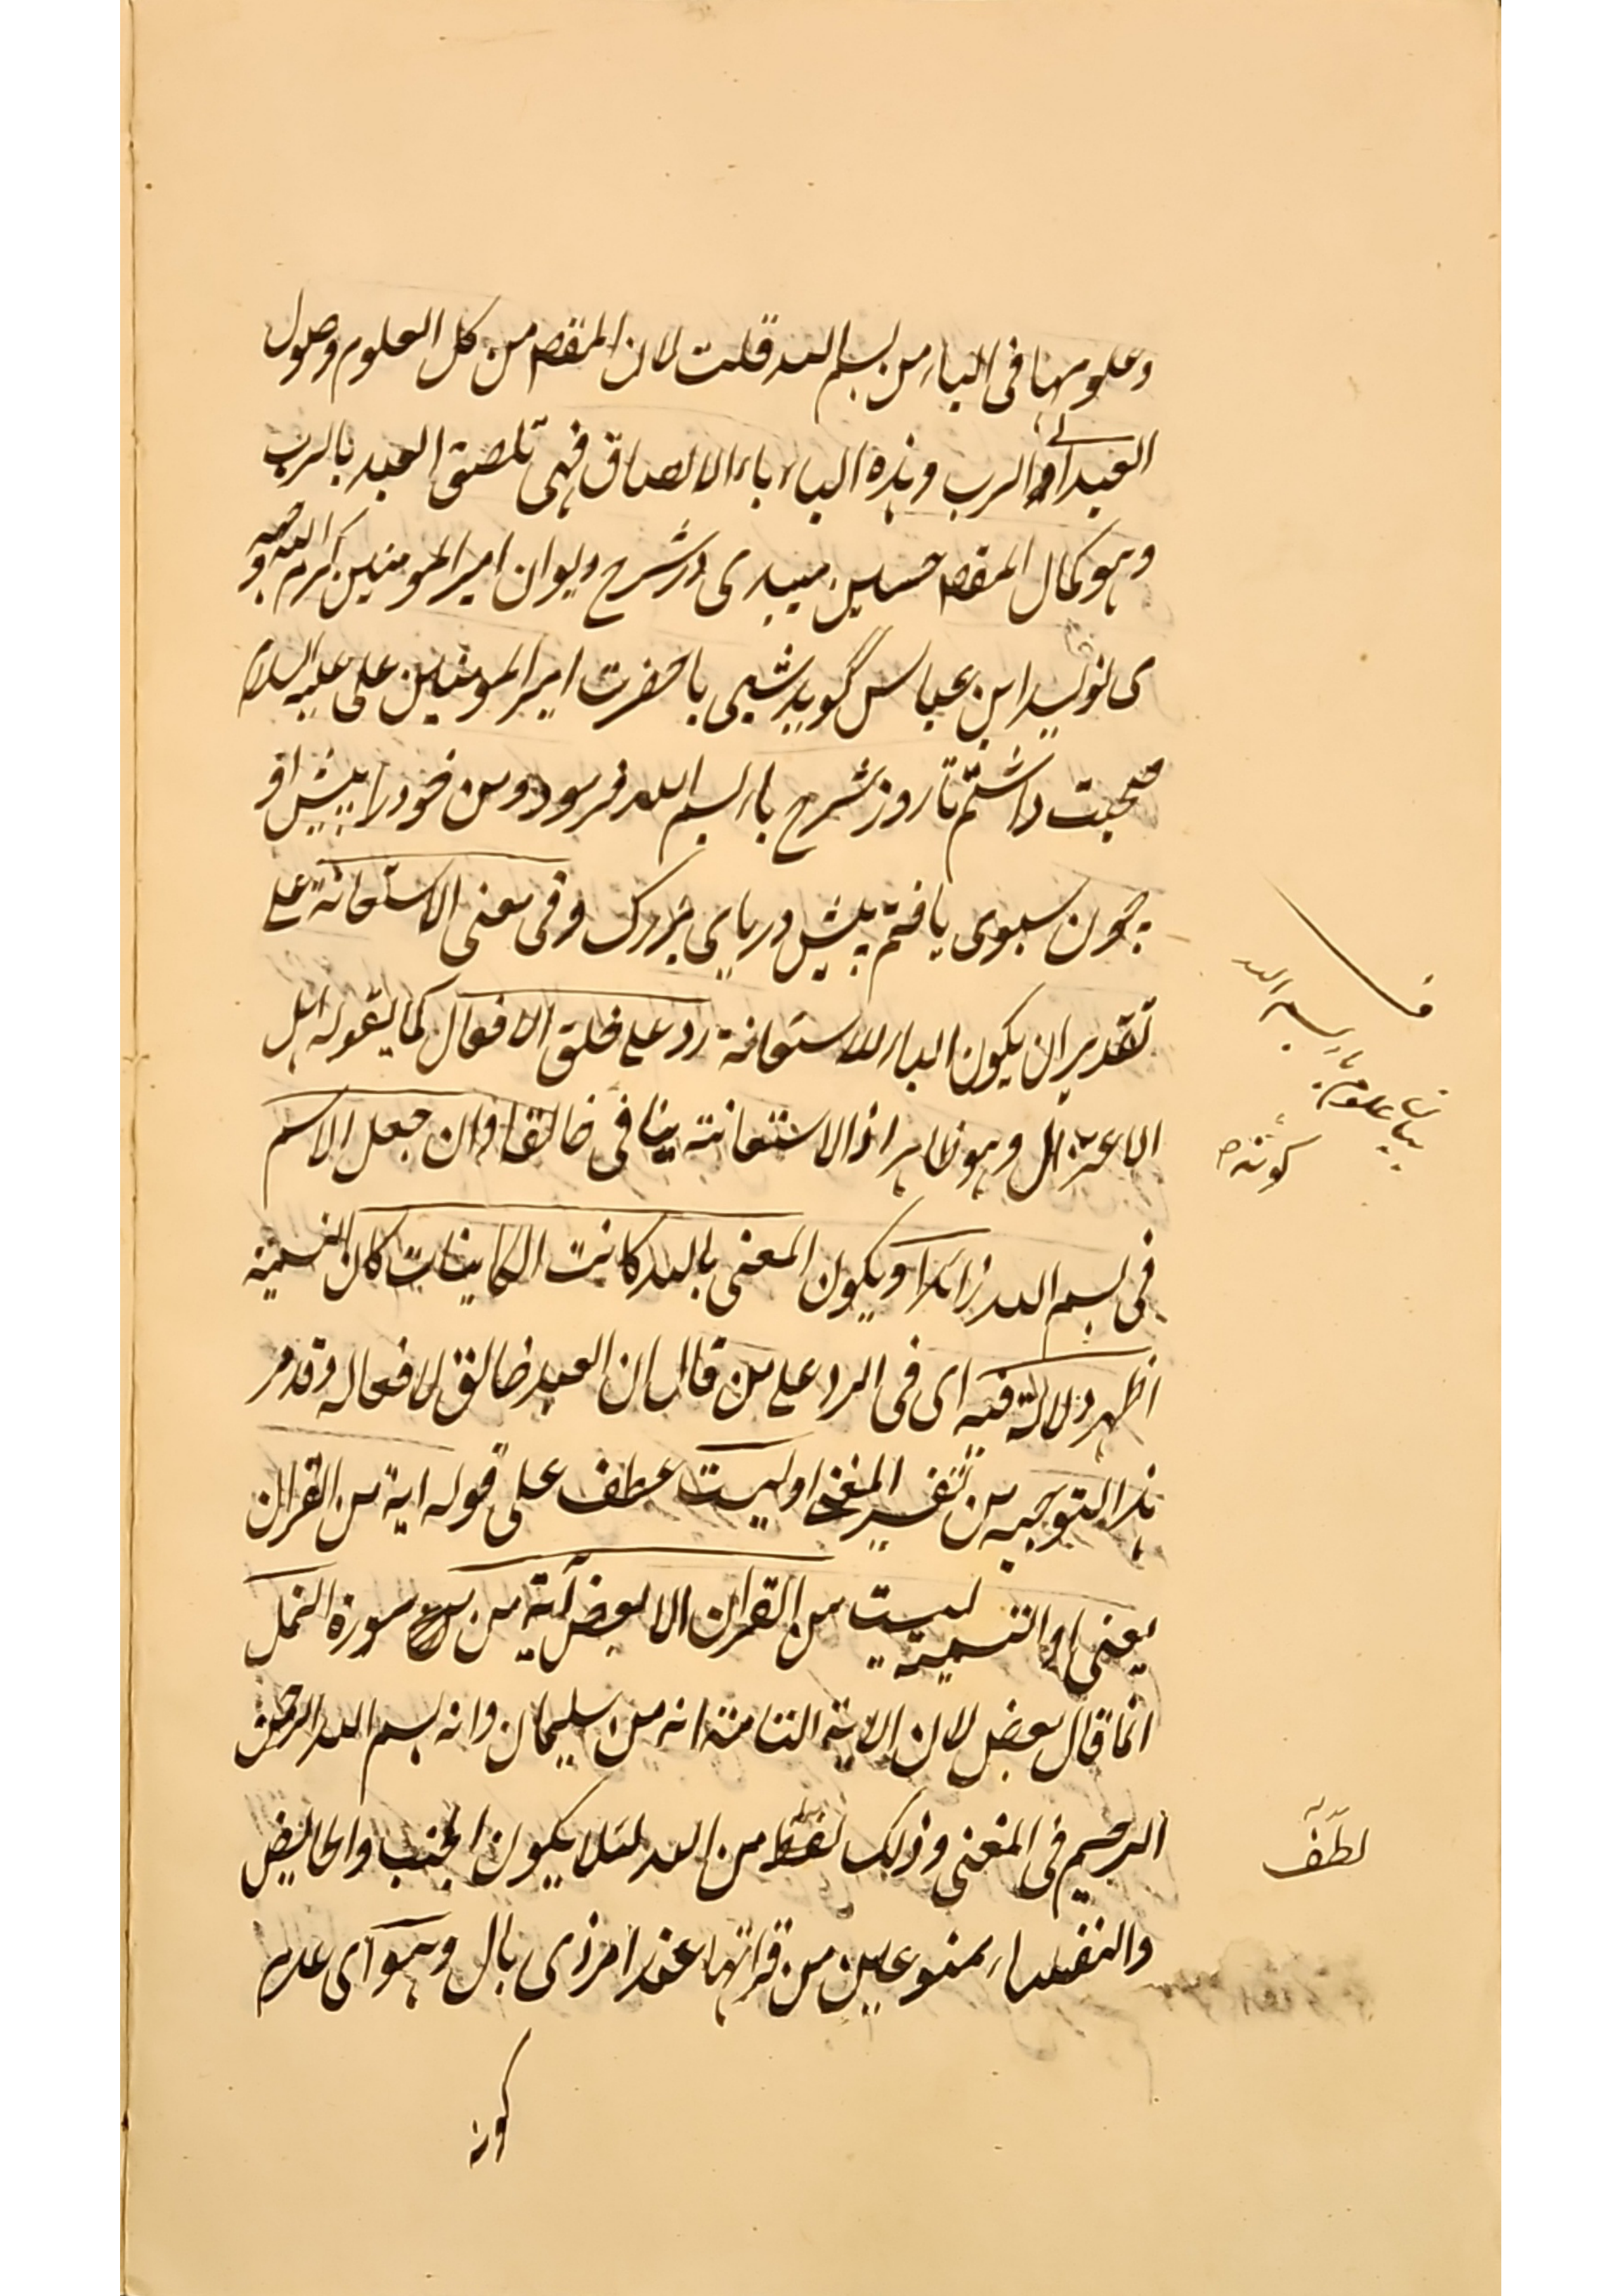 وعلومها فى الباء من بسم الله قلت لان المقصم من كل العلوم وصول
العبد الى الرب وهذه الباء باء الالصاق فهى تلصق العبد بالرب
وهو كمال المقصم حسين ميبدى در شرح ديوان امير المومنين كرم الله وجهه
مى نويسد ابن عباس گويد شبى با حضرت امير المومنين على عليه السلام
صحبت داشتم تا روز شرح باء بسم الله فرمود ومن خود را پيش او
چون سبوى يافتم پيش درياى بزرگ وفى معنى الاستعانة على
تقدير ان يكون الباء للاستعانة رد على خلق الافعال كما يقوله اهل
الاعتزال وهو ظاهر اذ الاستعانة ينافى خالقا وان جعل الاسم
فى بسم الله زائدا ويكون المعنى بالله كانت الكاينات كان التسمية
اظهر دلالة فيه اى فى الرد على من قال ان العبد خالق لافعاله وقد مر
هذا التوجيه من تفسير المغنى او ليست عطف على قوله اية من القران
يعنى او التسمية ليست من القران الا بعض آية من سورة النمل
انما قال بعض لان الاية التامة انه من سليمان وانه بسم الله الرحمن
الرحيم فى المغنى وذلك من الله لئلا يكون الجنب والحايض
والنفساء ممنوعين من قراتها عند امر ذى بال وهو اى عدم
كونه
بسم الله
بيان علوم باء
لطف